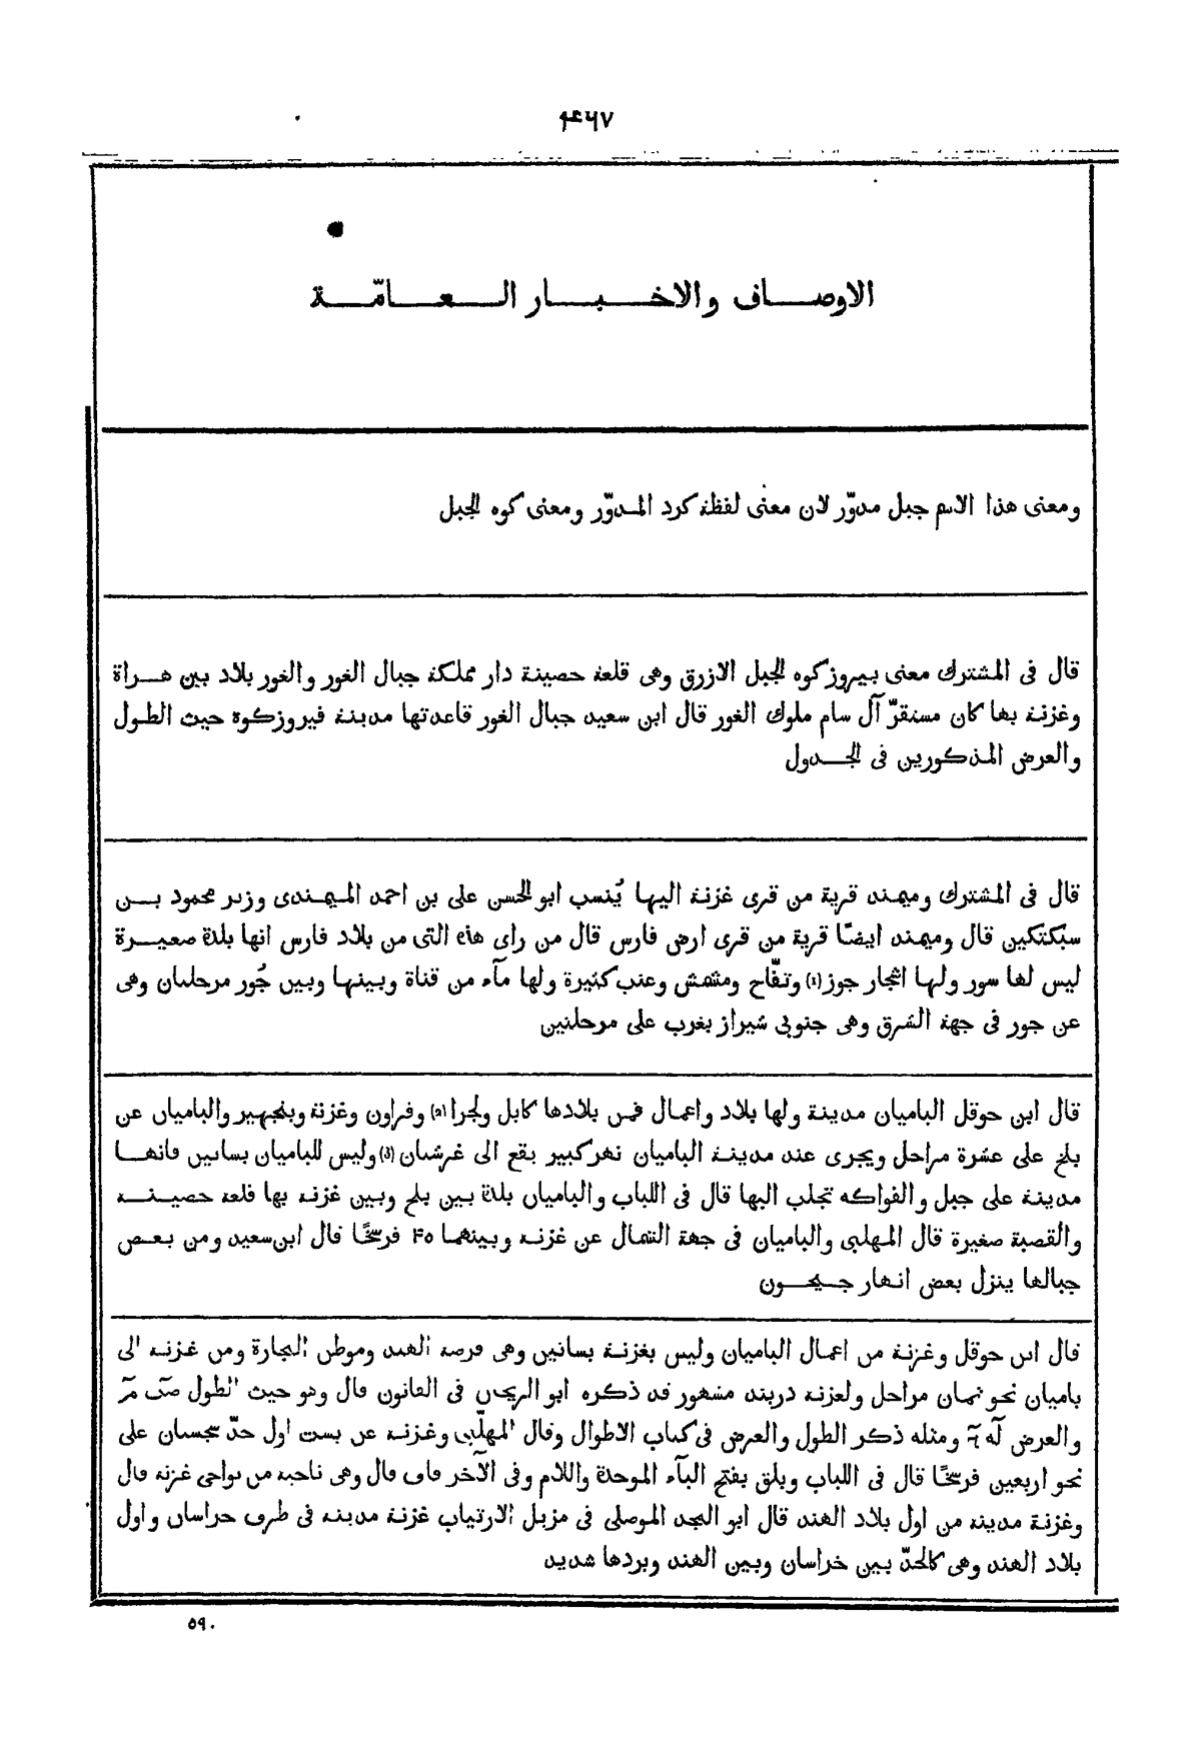 ۴۶۷
الاوصاف والاخبار العامّة
ومعنى هذا الاسم جبل مدوّر لان معنى لفظة كرد المدوّر ومعنى كوه الجبل
قال فى المشترك معنى بيروزكوه الجبل الازرق وهى قلعة حصينة دار مملكة جبال الغور والغور بلاد بين هراة
وغزنة بها كان مستقرّ آل سام ملوك الغور قال ابن سعيد جبال الغور قاعدتها مدينة فيروزكوة حيث الطول
والعرض المذكورين فى الجدول
قال فى المشترك وميهند قرية من قرى غزنة اليها يُنسب ابو الحسن على بن احمد الميهندى وزير محمود بن
سبكتكين قال وميهند ايضًا قرية من قرى ارض فارس قال من راى هذه التى من بلاد فارس انها بلدة صغيرة
ليس لها سور ولها اشجار جوز(١) وتفّاح ومشمش وعنب كثيرة ولها مآء من قناة وبينها وبين جُور مرحلتان وهى
عن جور فى جهة الشرق وهى جنوبى شيراز بغرب على مرحلتين
قال ابن حوقل الباميان مدينة ولها بلاد واعمال فمن بلادها كابل ولجرا(٢) وفراون وغزنة وبنجهير والباميان عن
بلخ على عشرة مراحل ويجرى عند مدينة الباميان نهر كبير يقع الى غرشتان(٣) وليس للباميان بساتين فانها
مدينة على جبل والفواكه تجلب اليها قال فى اللباب والباميان بلدة بين بلخ وبين غزنة بها قلعة حصينة
والقصبة صغيرة قال المهلبى والباميان فى جهة الشمال عن غزنة وبينهما ٢٥ فرسخًا قال ابن سعيد ومن بعض
جبالها ينزل بعض انهار جيحون
قال ابن حوقل وغزنة من اعمال الباميان وليس بغزنة بساتين وهى فرصة الهند وموطن التجارة ومن غزنة الى
باميان نحو ثمان مراحل ولغزنة دربند مشهور قد ذكره ابو الريحان فى القانون قال وهو حيث الطول صَد مَ
والعرض لَه وَ ومثله ذكر الطول والعرض فى كتاب الاطوال وقال المهلّبى وغزنة عن بست اول حدّ سجستان على
نحو اربعين فرسخًا قال فى اللباب وبلق بفتح البآء الموحدة واللام وفى الآخر قاف قال وهى ناحية من نواحى غزنة قال
وغزنة مدينة من اول بلاد الهند قال ابو المجد الموصلى فى مزيل الارتياب غزنة مدينة فى طرف خراسان واول
بلاد الهند وهى كالحدّ بين خراسان وبين الهند وبردها شديد
٥٩٠